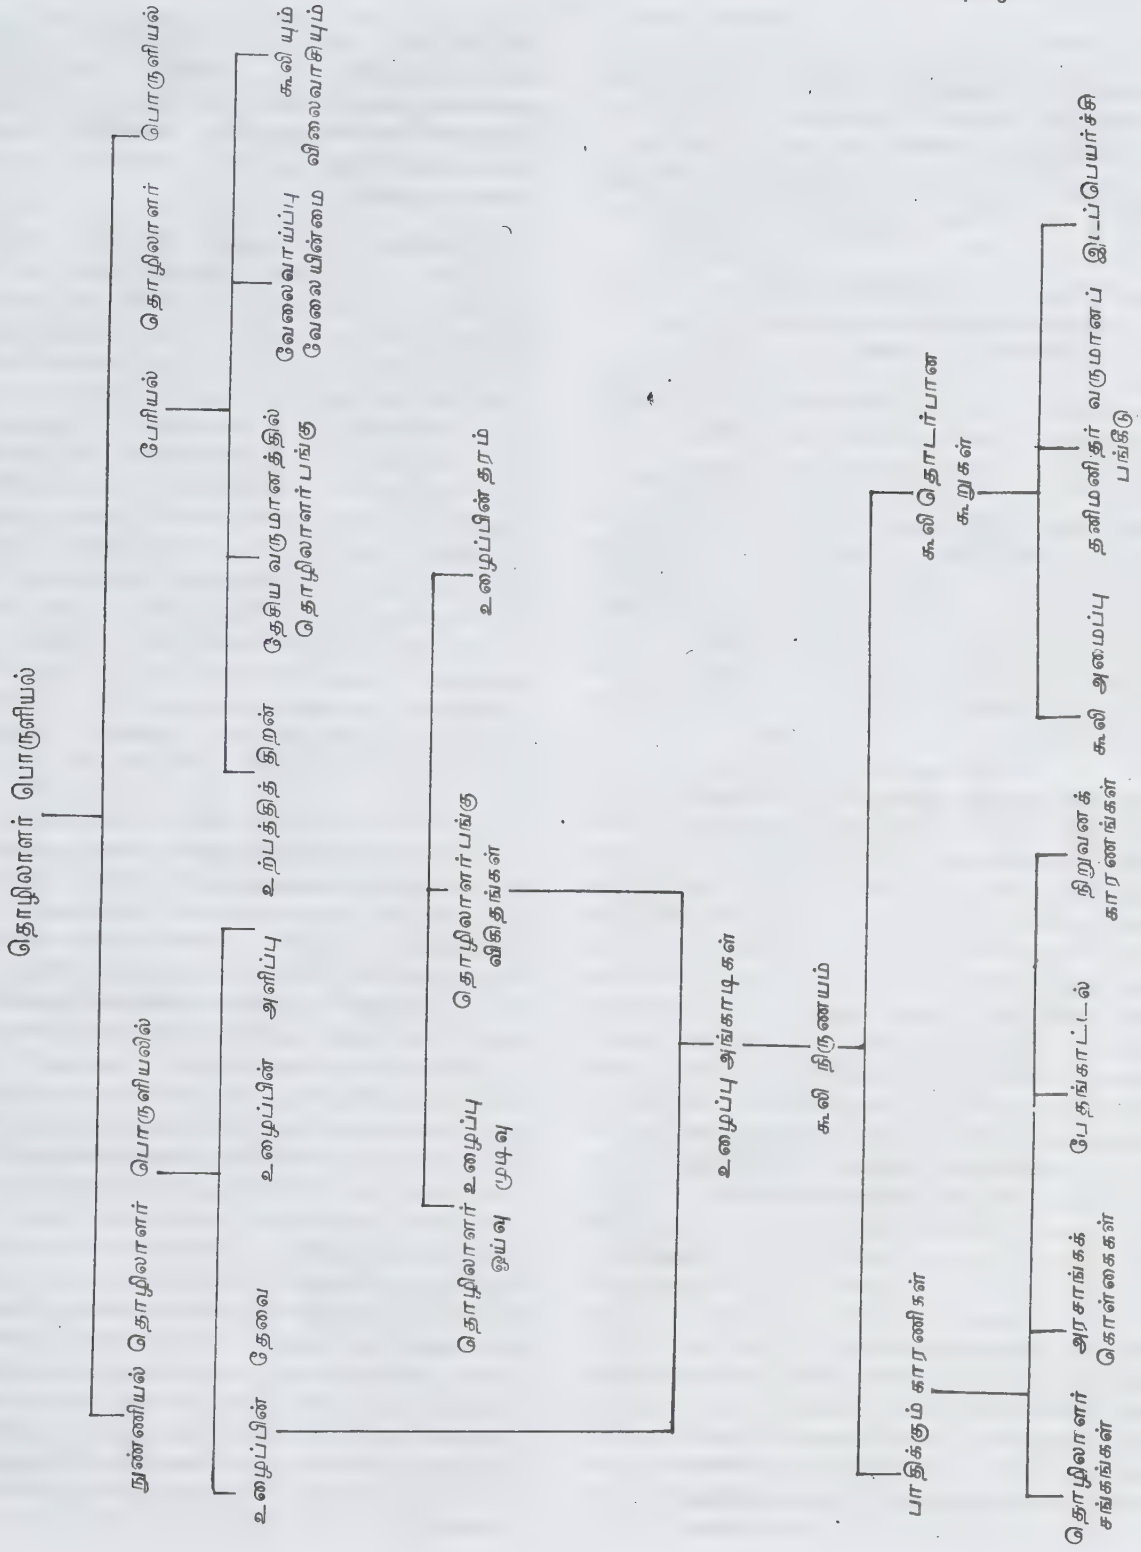 தொழிலாளர் பொருளியல்
நுண்ணியல் தொழிலாளர் பொருளியலில்
பேரியல் தொழிலாளர் பொருளியல்
உழைப்பின் தேவை
உழைப்பின் அளிப்பு
உற்பத்தித் திறன்
தேசிய வருமானத்தில்
தொழிலாளர் பங்கு
வேலைவாய்ப்பு
வேலையின்மை
கூலி யும்
விலைவாசியும்
தொழிலாளர் உழைப்பு
ஓய்வு முடிவு
தொழிலாளர் பங்கு
விகிதங்கள்
உழைப்பின் தரம்
உழைப்பு அங்காடிகள்
கூலி நிருணயம்
பாதிக்கும் காரணிகள்
கூலி தொடர்பான
கூறுகள்
தொழிலாளர்
சங்கங்கள்
அரசாங்கக்
கொள்கைகள்
பேதங்காட்டல்
நிறுவனக்
காரணங்கள்
கூலி அமைப்பு
தனிமனிதர் வருமானப்
பங்கீடு
இடப்பெயர்ச்சி